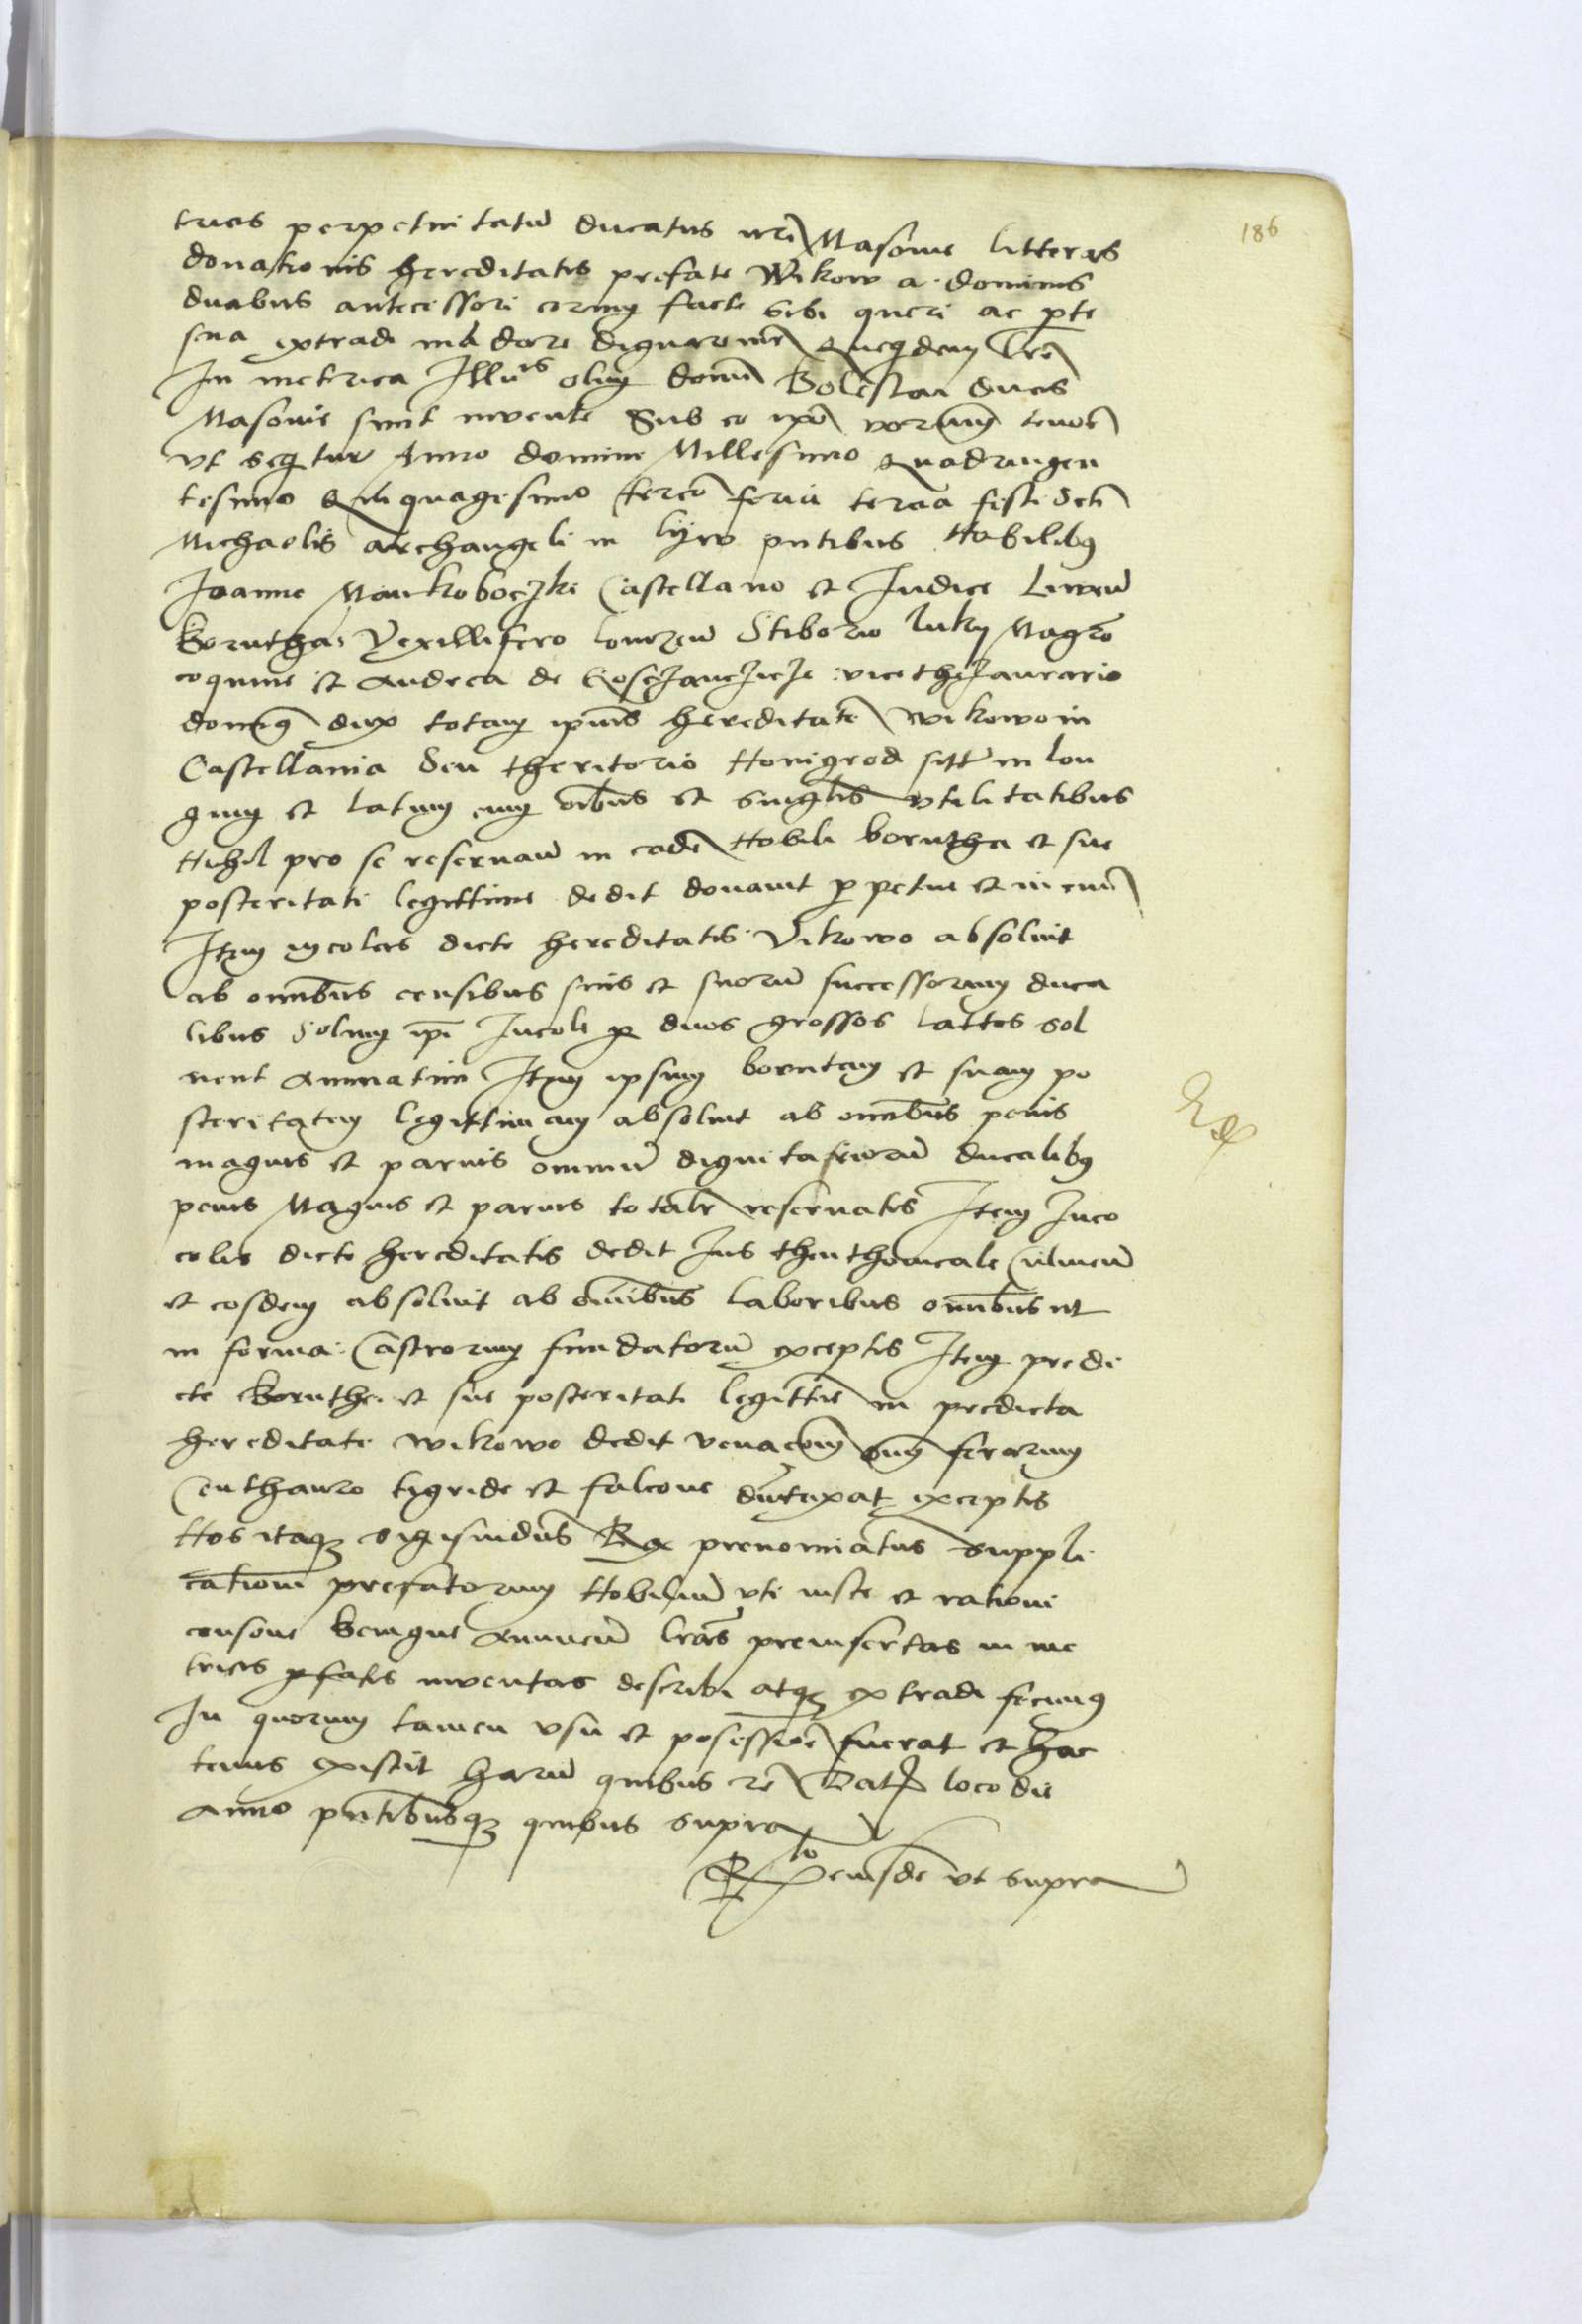 186
tricas perpetuitatũ ducatus nrĩ Masouie litteras
donationis hereditatis prefate Wikow a dominis
ducibus antecessori eorum facte sibi queri ac parte
sua extradi mãdare dignaremur Quequidem lrẽ
In metrica Illuris olim domĩ Boleslai ducis
Masouie sunt inuente Sub eo qui verborum tenore
vt sequitur Anno domini Millesimo Quadringen
tesimo Quinquagesimo tercio feria tercia festi Scti
Michaelis archangeli in lyw pntibus Nobilibus
Joanne Mankoboczki Castellano et Iudice Liwen̄
Borutha Vexillifero lomzen̄ Stiborio luky Magro
coquine et Andrea de Gosczanczicze vicethezaurario
dominus dux totam ipius hereditatẽ wikowo in
Castellania Seu theritorio Nowigrod sitã in lon
gum et latum cum oibus et singlis vtilitatibus
Nihil pro se reseruan̄ in eadẽ Nobili borutha et sue
posteritati legittime dedit donauit perpetue et in euũ
Item incolas dicte hereditatis Vikowo absoluit
ab omibus censibus suis et suorũ successorum duca
libus Solum ipi Incole per duos grossos lattos sol
uent annuatim Item ipsum borutam et suam po
steritatem legittimam absoluit ab omibus penis
magnis et paruis omniũ dignitariorũ ducalibus
penis Magnis et paruis totalr reseruatis Item Inco
colis dicte hereditatis dedit Ius theuthonicale Culmen̄
et eosdem absoluit ab omibus laboribus omibus ut
in forma Castrorum fundatorũ exceptis Item predi
cte Boruthe et sue posteritati legittie in predicta
hereditate wikowo dedit venacõem omĩ ferarum
Centhauro tigride et falcone dũtaxat exceptis
Nos itaque Sigismũdus Rex prenomiatus suppli
cationi prefatorum Nobiliũ vti iuste et rationi
consone benigne Annuen̄ lrãs preinsertas in me
tricis prefatis inuentas describi atque extradi fecimus
In quorum tamen vsu et posessione fuerat et hac
tenus existit harũ quibus rẽ Dat loco die
Anno pntibusque quibus supra
Rlo eiusdẽ vt supra